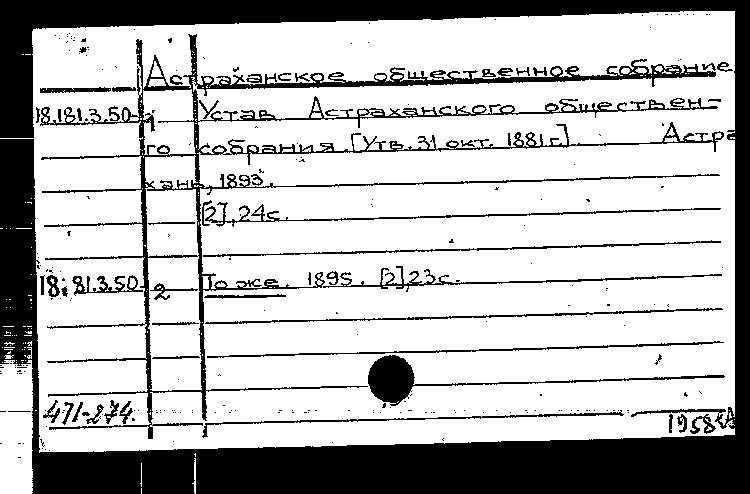 Астраханское общественное собрание
18.181.3.50-1 Устав Астраханского обществен-
го собрания. [Утв. 31 окт. 1881 г.] Астра
хань, 1893.
[2], 24 с.
18.181.3.50-2 То же. 1895. [2], 23 с.
471-274.
1958